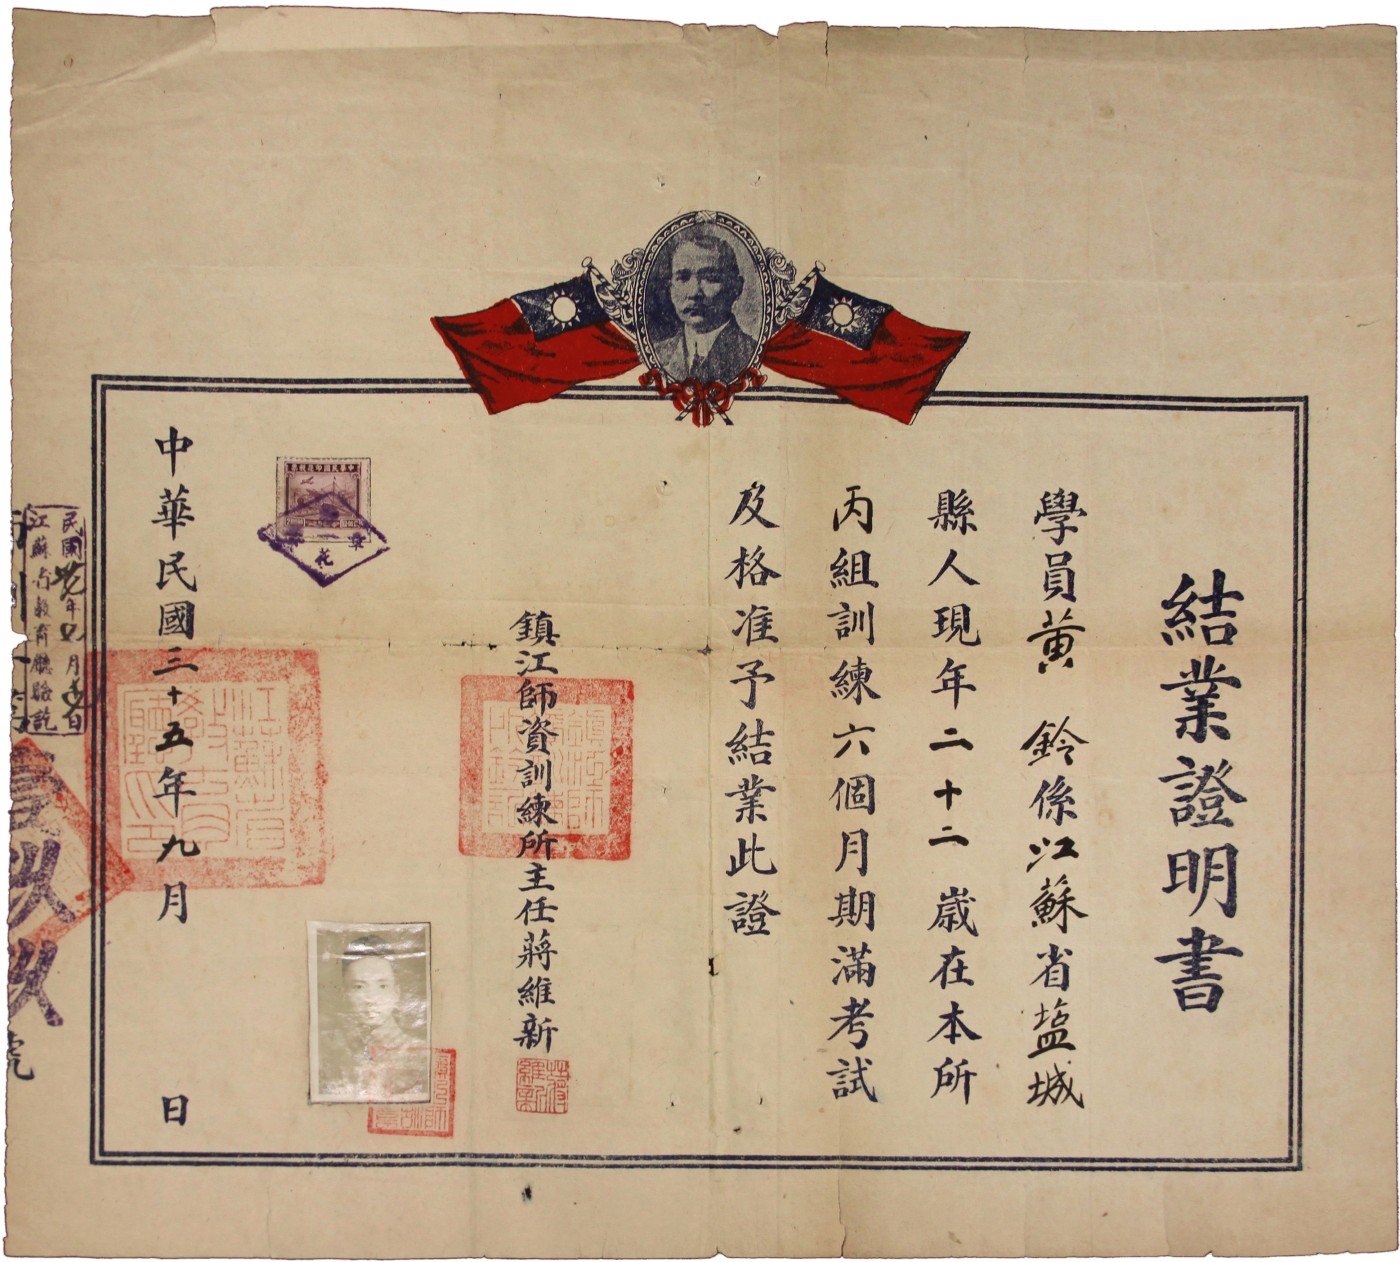 結業證明書
學員黃 鈴係江蘇省塩城
縣人現年二十二歲在本所
丙組訓練六個月期滿考試
及格准予結業此證
鎮江師資訓練所主任蔣維新
蔣維新
中華民國三十五年九月 日
江蘇省教育廳印
江蘇省教育廳驗訖
號